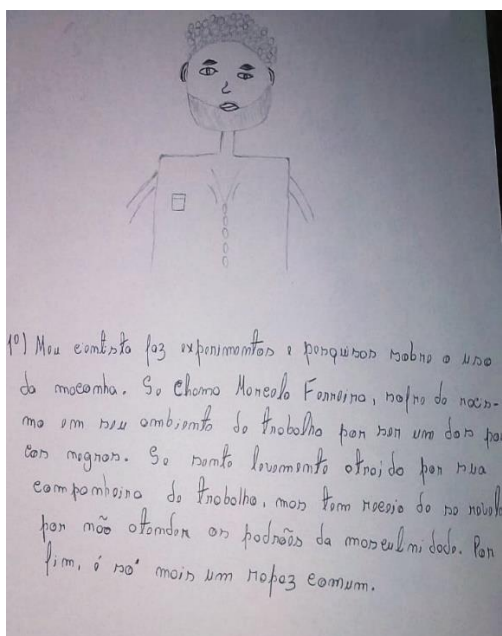 1º) Meu cientista faz experimentos e pesquisas sobre o uso
da maconha. Se chama Marcelo Ferreira, sofre de racis-
mo em seu ambiente de trabalho por ser um dos pou
cos negros. Se sente levemente atraído por sua
companheira de trabalho, mas tem receio de se revela
por não atender os padrões da masculnidade. Por
fim, é só mais um rapaz comum.